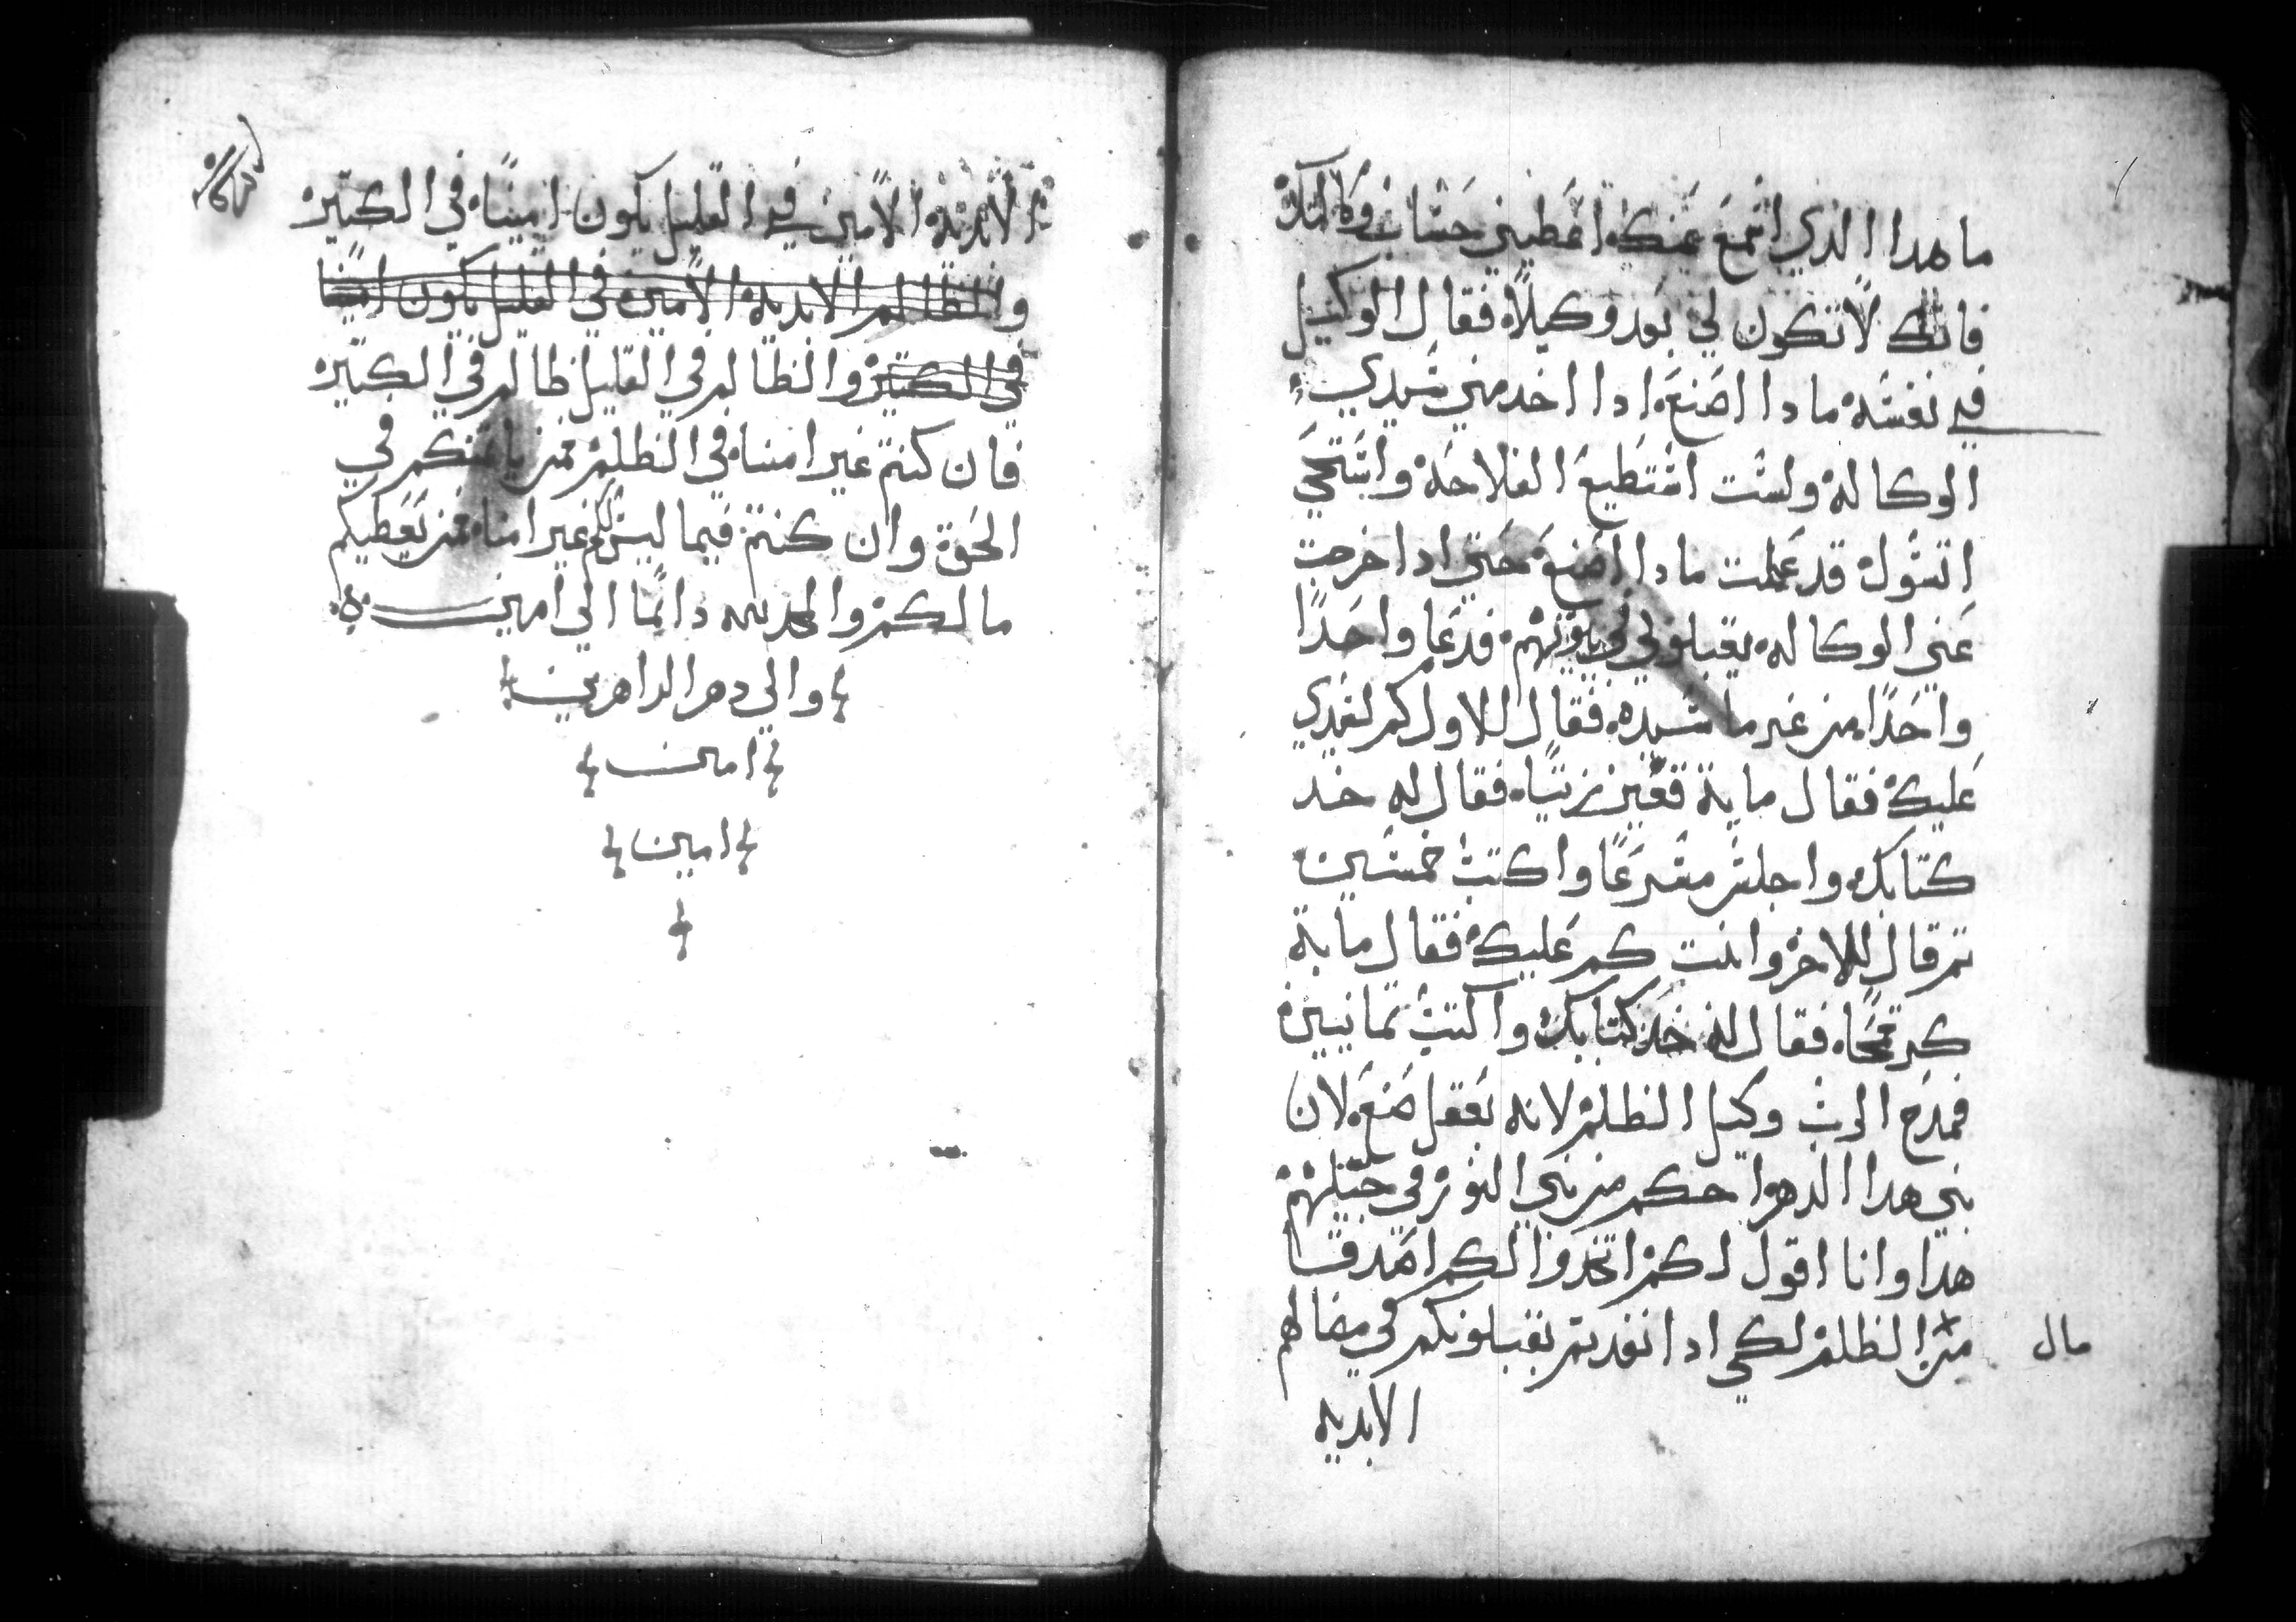 ما هدا الدي اسمع عنك اعطيني حساب وكالتك
فانك لا تكون لي بعد وكيلاه فقال الوكيل
في نفسه مادا اصنع ادا اخد مني سيدي
الوكاله ولست استطيع الفلاحه واستحي
اتسول قد علمت مادا اصنع حتي ادا خرجت
عني الوكاله يقبلوني في بيوتهم فدعا واحدًا
واحدًا من غرما سيده فقال للاول كم لسيدي
عليك فقال ماية قفيز زيتاه فقال له خد
كتابك واجلس مسرعًا واكتب خمسين
تم قال للاخر وانت كم عليك فقال ماية
كر قمحًاه فقال له خد كتابك واكتب تمانيين
فمدح الرب وكيل الظلم لانه بعقل صنع لان
بني هدا الدهر احكم من بني النور في جيلهم
هدا وانا اقول لكم اتخدوا لكم اصدقا
من الظلم لكي ادا نفد تم يقبلونكم في مضالهم
مال
الابديه
الابديه الامين في القليل يكون امينًاه في الكتير
والظالم الابديه الامين في القليل يكون امينا
في الكتير والظالم في القليل ظالم في الكتير
فان كنتم غير امناه في الظلم فمن يامنكم في
الحق وان كنتم فيما ليس لكم غير امناه فمن يعطيكم
مالكم والمجد لله دائمًا الي امين
والي دهر الداهرين
امين
امين